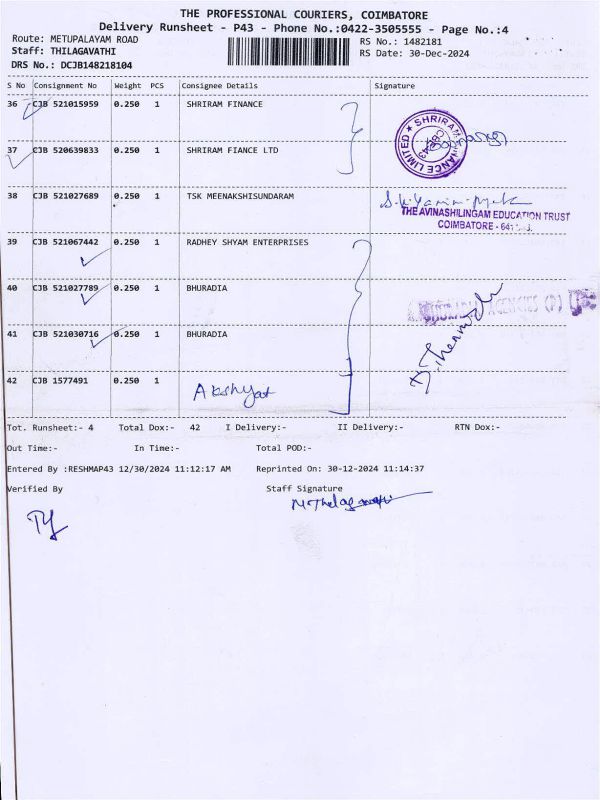 THE PROFESSIONAL COURIERS, COIMBATORE
Delivery Runsheet - P43 - Phone No.:0422-3505555 - Page No.:4
Route: METUPALAYAM ROAD
RS No.: 1482181
Staff: THILAGAVATHI
RS Date: 30-Dec-2024
DRS No.: DCJB148218104
S No Consignment No Weight PCS Consignee Details Signature
36 CJB 521015959 0.250 1 SHRIRAM FINANCE
SHRIRAM FINANCE LIMITED
37 CJB 520639833 0.250 1 SHRIRAM FIANCE LTD
38 CJB 521027689 0.250 1 TSK MEENAKSHISUNDARAM
THE AVINASHILINGAM EDUCATION TRUST
COIMBATORE - 641
39 CJB 521067442 0.250 1 RADHEY SHYAM ENTERPRISES
40 CJB 521027789 0.250 1 BHURADIA
AGENCIES (P)
41 CJB 521030716 0.250 1 BHURADIA
42 CJB 1577491 0.250 1 Akshya
Tot. Runsheet:- 4 Total Dox:- 42 I Delivery:- II Delivery:- RTN Dox:-
Out Time:- In Time:- Total POD:-
Entered By :RESHMAP43 12/30/2024 11:12:17 AM Reprinted On: 30-12-2024 11:14:37
Verified By Staff Signature